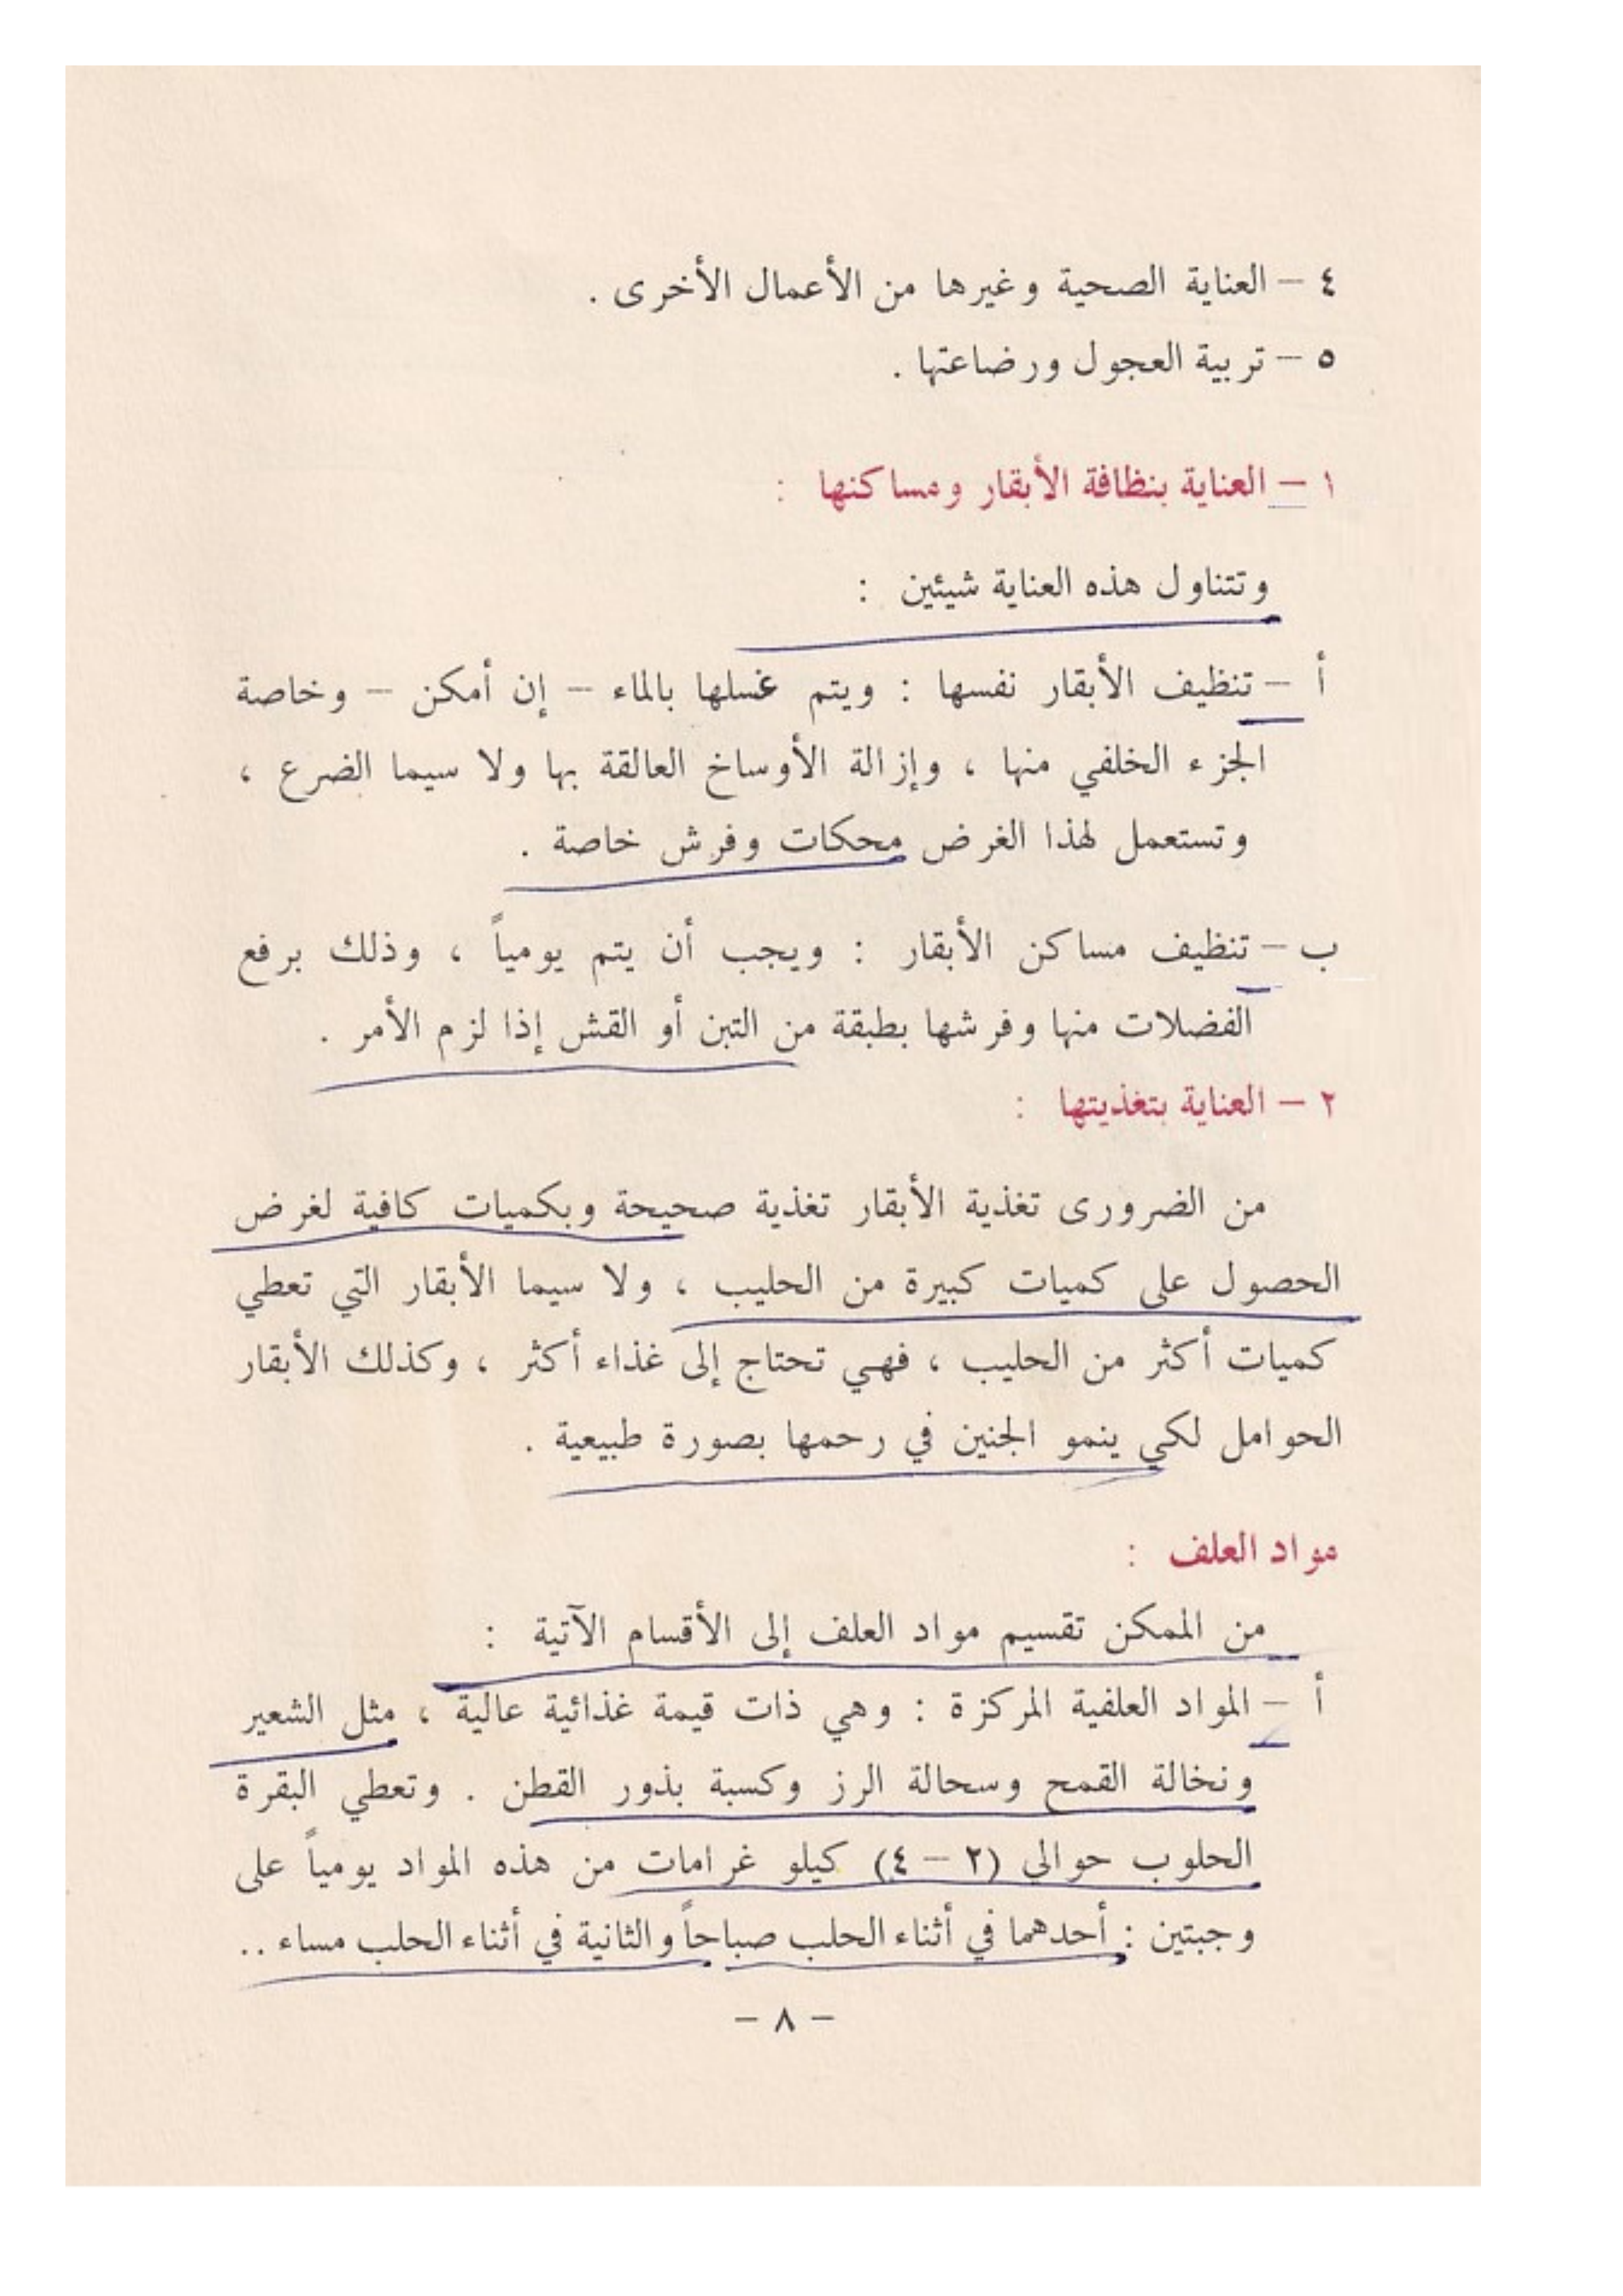 ٤ – العناية الصحية وغيرها من الأعمال الأخرى .
٥ – تربية العجول ورضاعتها .
١ – العناية بنظافة الأبقار ومساكنها :
وتتناول هذه العناية شيئين :
أ – تنظيف الأبقار نفسها : ويتم غسلها بالماء – إن أمكن – وخاصة
الجزء الخلفي منها ، وإزالة الأوساخ العالقة بها ولا سيما الضرع ،
وتستعمل لهذا الغرض محكات وفرش خاصة .
ب – تنظيف مساكن الأبقار : ويجب أن يتم يومياً ، وذلك برفع
الفضلات منها وفرشها بطبقة من التبن أو القش إذا لزم الأمر .
٢ – العناية بتغذيتها :
من الضرورى تغذية الأبقار تغذية صحيحة وبكميات كافية لغرض
الحصول على كميات كبيرة من الحليب ، ولا سيما الأبقار التي تعطي
كميات أكثر من الحليب ، فهي تحتاج إلى غذاء أكثر ، وكذلك الأبقار
الحوامل لكي ينمو الجنين في رحمها بصورة طبيعية .
مواد العلف :
من الممكن تقسيم مواد العلف إلى الأقسام الآتية :
أ – المواد العلفية المركزة : وهي ذات قيمة غذائية عالية ، مثل الشعير
ونخالة القمح وسحالة الرز وكسبة بذور القطن . وتعطي البقرة
الحلوب حوالي (٢ – ٤) كيلو غرامات من هذه المواد يومياً على
وجبتين : أحدهما في أثناء الحلب صباحاً والثانية في أثناء الحلب مساء ..
– ٨ –